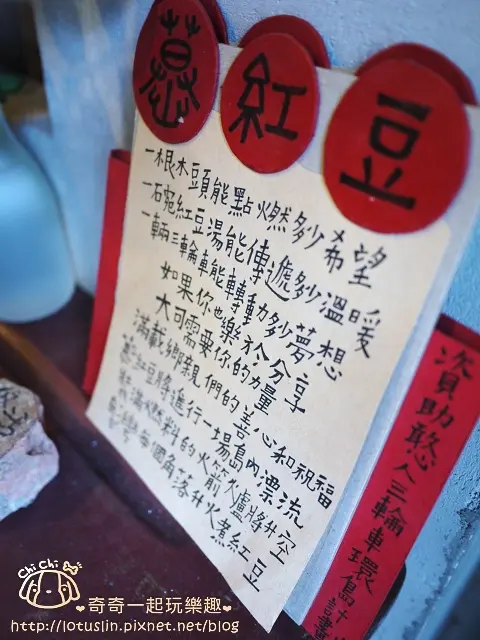 憨紅豆
一根木頭能點燃多少希望
一碗紅豆湯能傳遞多少溫暖
一輛三輪車能轉動多少夢想
如果你也樂於分享
大可需要你的力量
滿載鄉親們的善心和祝福
憨紅豆將進行一場島內漂流
裝滿燃料的火箭火爐將升空
在每個角落升火煮紅豆
資助憨人三輪車環島計畫
ChiChi
奇奇一起玩樂趣
http://lotuslin.pixnet.net/blog